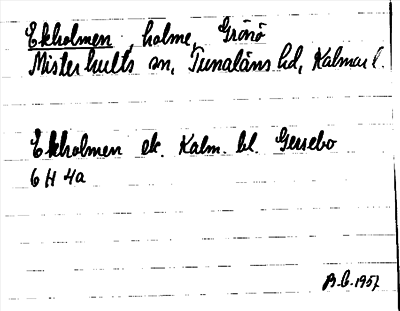 Ekholmen, holme, Grönö
Misterhults sn, Tunaläns hd, Kalmar l.
Ekholmen ek. Kalm. bl. Gersebo
6 H 4a
B.G. 1957